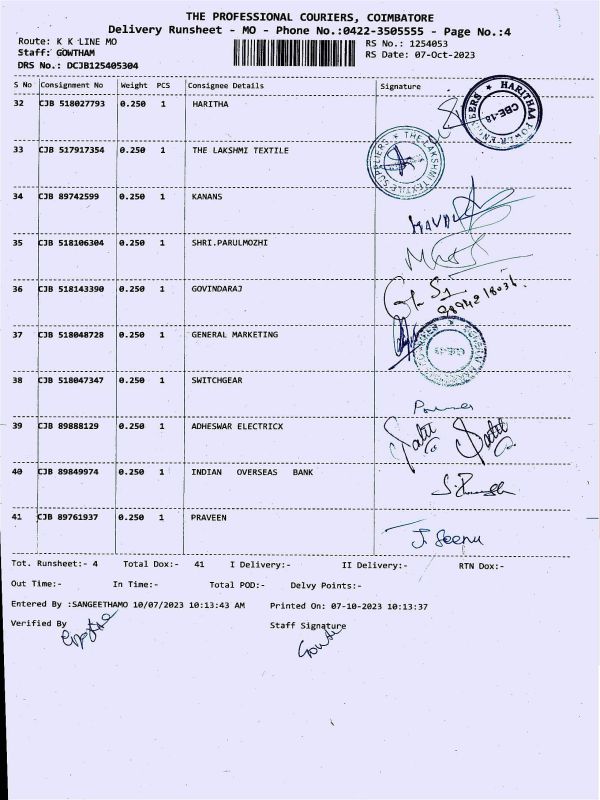 THE PROFESSIONAL COURIERS, COIMBATORE
Delivery Runsheet - MO - Phone No.:0422-3505555 - Page No.:4
Route: K K LINE MO
RS No.: 1254053
Staff: GOWTHAM
RS Date: 07-Oct-2023
DRS No.: DCJB125405304
S No Consignment No Weight PCS Consignee Details Signature
32 CJB 518027793 0.250 1 HARITHA
HARITHAA POWER ENGINEERS CBE-18
33 CJB 517917354 0.250 1 THE LAKSHMI TEXTILE
THE LAKSHMI TEXTILE SUPPLIERS
34 CJB 89742599 0.250 1 KANANS
35 CJB 518106304 0.250 1 SHRI.PARULMOZHI
36 CJB 518143390 0.250 1 GOVINDARAJ
37 CJB 518048728 0.250 1 GENERAL MARKETING
38 CJB 518047347 0.250 1 SWITCHGEAR
39 CJB 89888129 0.250 1 ADHESWAR ELECTRICX
40 CJB 89849974 0.250 1 INDIAN OVERSEAS BANK
41 CJB 89761937 0.250 1 PRAVEEN
J. Seenu
Tot. Runsheet:- 4 Total Dox:- 41 I Delivery:- II Delivery:- RTN Dox:-
Out Time:- In Time:- Total POD:- Delvy Points:-
Entered By :SANGEETHAMO 10/07/2023 10:13:43 AM Printed On: 07-10-2023 10:13:37
Verified By Staff Signature